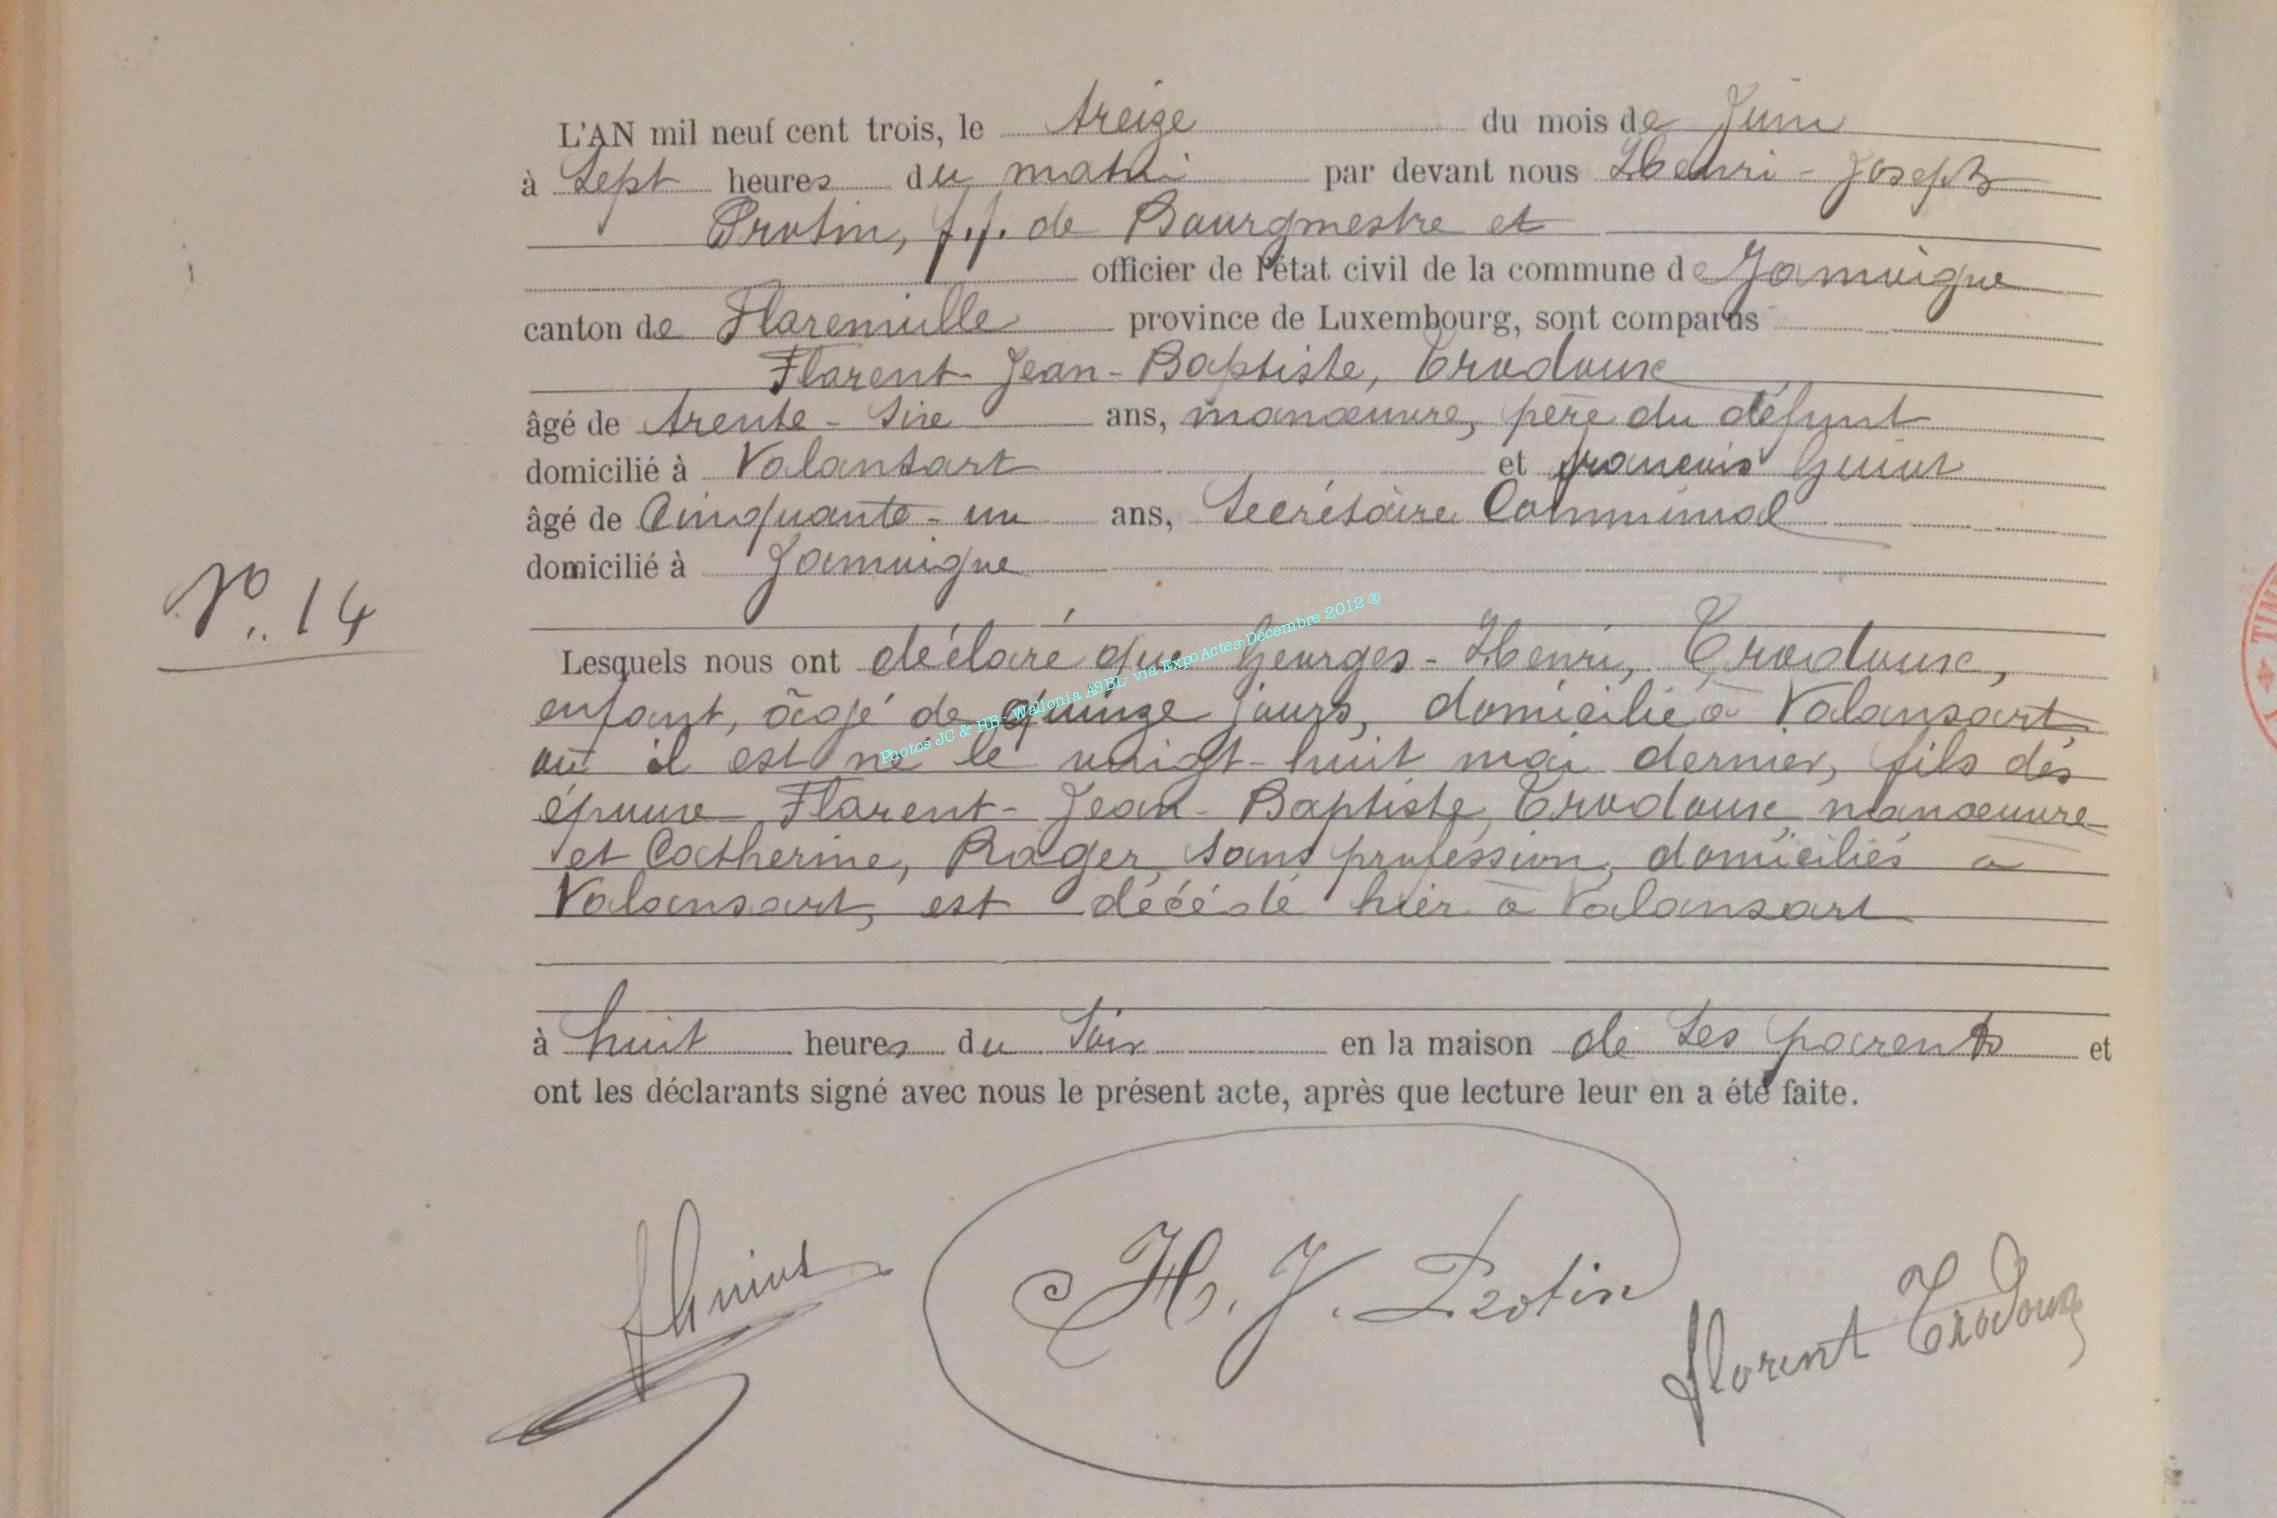 L'AN mil neuf cent trois, le treize du mois de Juin
à Sept heures du matin par devant nous Henri-Joseph
Protin, f.f. de Bourgmestre et
officier de l'état civil de la commune de Jamoigne
canton de Florenville province de Luxembourg, sont comparus
Florent-Jean-Baptiste, Trodoux
âgé de trente-six ans, manœuvre, père du défunt
domicilié à Valansart et françois Guiot
âgé de Cinquante-un ans, Secrétaire Communal
domicilié à Jamoigne
N°. 14
Lesquels nous ont déclaré que Georges-Henri, Trodoux,
enfant, âgé de quinze jours, domicilié à Valansart,
où il est né le vingt-huit mai dernier, fils des
époux Florent-Jean-Baptiste, Trodoux, manœuvre
et Catherine, Roger, sans profession, domiciliés à
Valansart, est décédé hier à Valansart
à huit heures du Soir en la maison de Ses parents et
ont les déclarants signé avec nous le présent acte, après que lecture leur en a été faite.
fGuiot H. J. Protin florent Trodoux
Photos JC & HB - Wallonia ASBL via ExpoActes Décembre 2012 ®